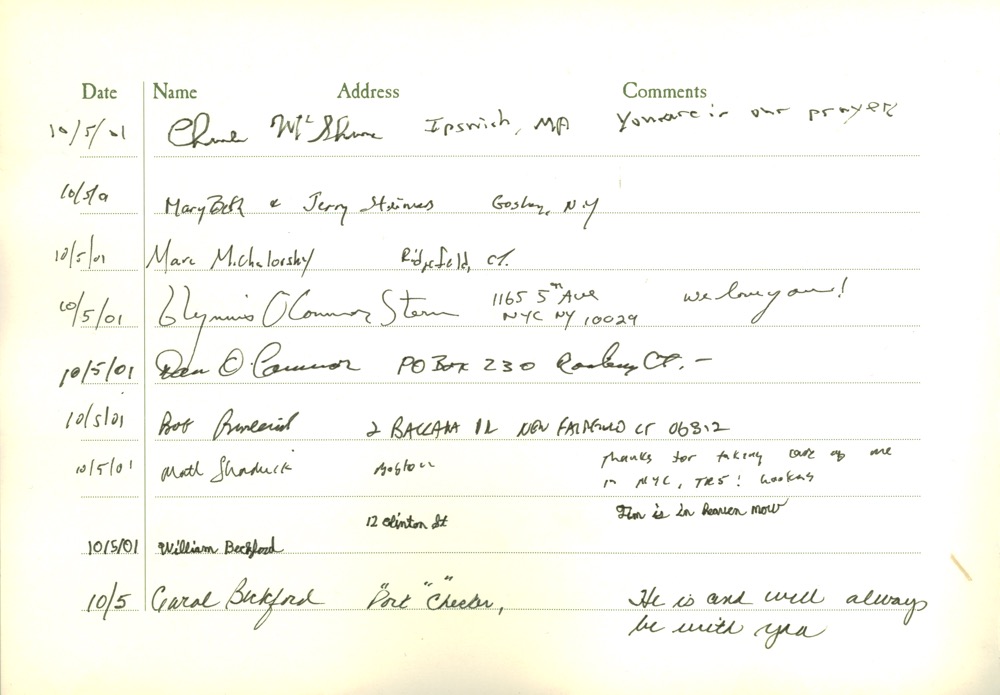 Date Name Address Comments
10/5/01 Ipswich, MA You are in our prayers
10/5/01 Mary Beth & Jerry NY
10/5/01 Marc Michalovsky Ridgefield, CT.
10/5/01 Glynnis O'Connor Stern 1165 5th Ave we love you!
NYC NY 10029
10/5/01 Dan O'Connor PO Box 230 Roxbury CT. -
10/5/01 Bob 2 NEW FAIRFIELD CT 06812
10/5/01 Matt Boston Thanks for taking care of me
in NYC,
12 Clinton St Tim is in Heaven now
10/5/01 William Beckford
10/5 Carol Beckford "Port" Chester, He is and will always
be with you